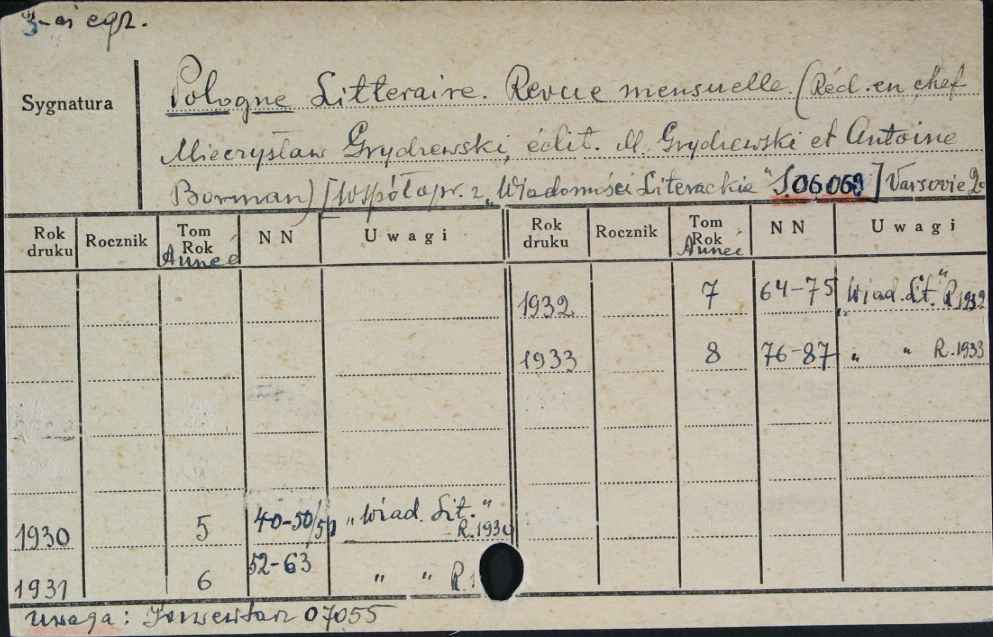 3-ci egz.
Sygnatura
Pologne Litteraire. Revue mensuelle. (Réd. en chef
Mieczysław Grydzewski, édit. M. Grydzewski et Antoine
Borman) [Współopr. z „Wiadomości Literackie" S.06069] Varsovie 2°
Rok druku Rocznik Tom Rok Année NN Uwagi Rok druku Rocznik Tom Rok Année NN Uwagi
1932 7 64-75 „Wiad. Lit." R.1932
1933 8 76-87 „ " R.1933
1930 5 40-50/51 „Wiad. Lit." R.1930
1931 6 52-63 „ " R.1
Uwaga: Inwentarz 07055